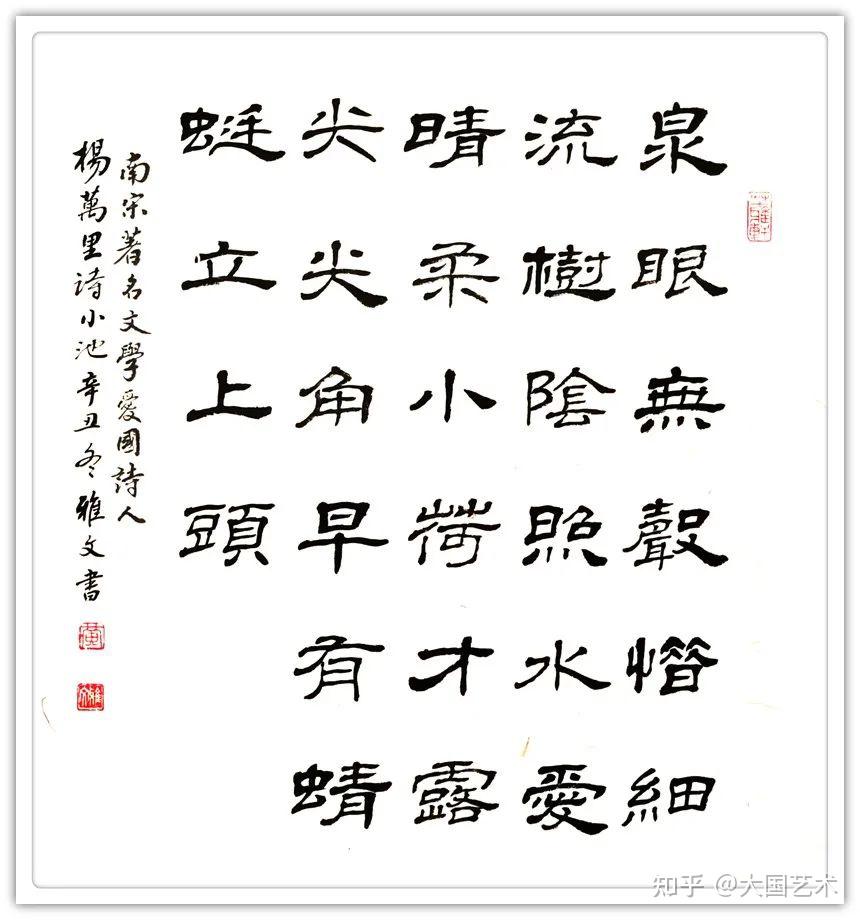 泉眼無聲惜細
流樹陰照水愛
晴柔小荷才露
尖尖角早有蜻
蜓立上頭
南宋著名文學愛國詩人
楊萬里詩小池辛丑冬雅文書
知乎 @大国艺术